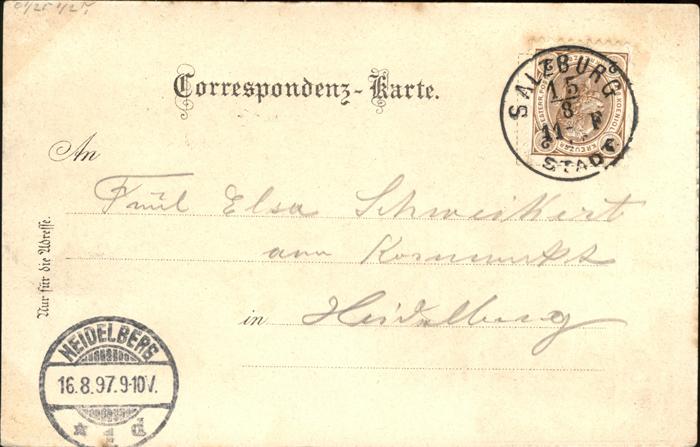 Correspondenz-Karte.
SALZBURG
15
8
11- F
STADT
An
Fräul Elsa Schweikert
am Kornmarkt
in Heidelberg
Nur für die Adresse.
HEIDELBERG
16.8.97.9-10V.